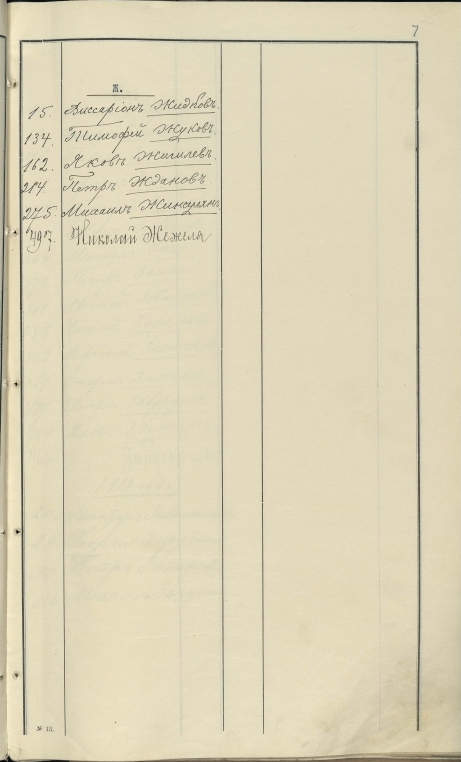 7
Ж.
15. Виссаріонъ Жидковъ.
134. Тимофей Жуковъ.
162. Яковъ Жигилевъ.
214 Петръ Ждановъ.
275. Михаилъ
497. Николай Жежеля
№ 13.